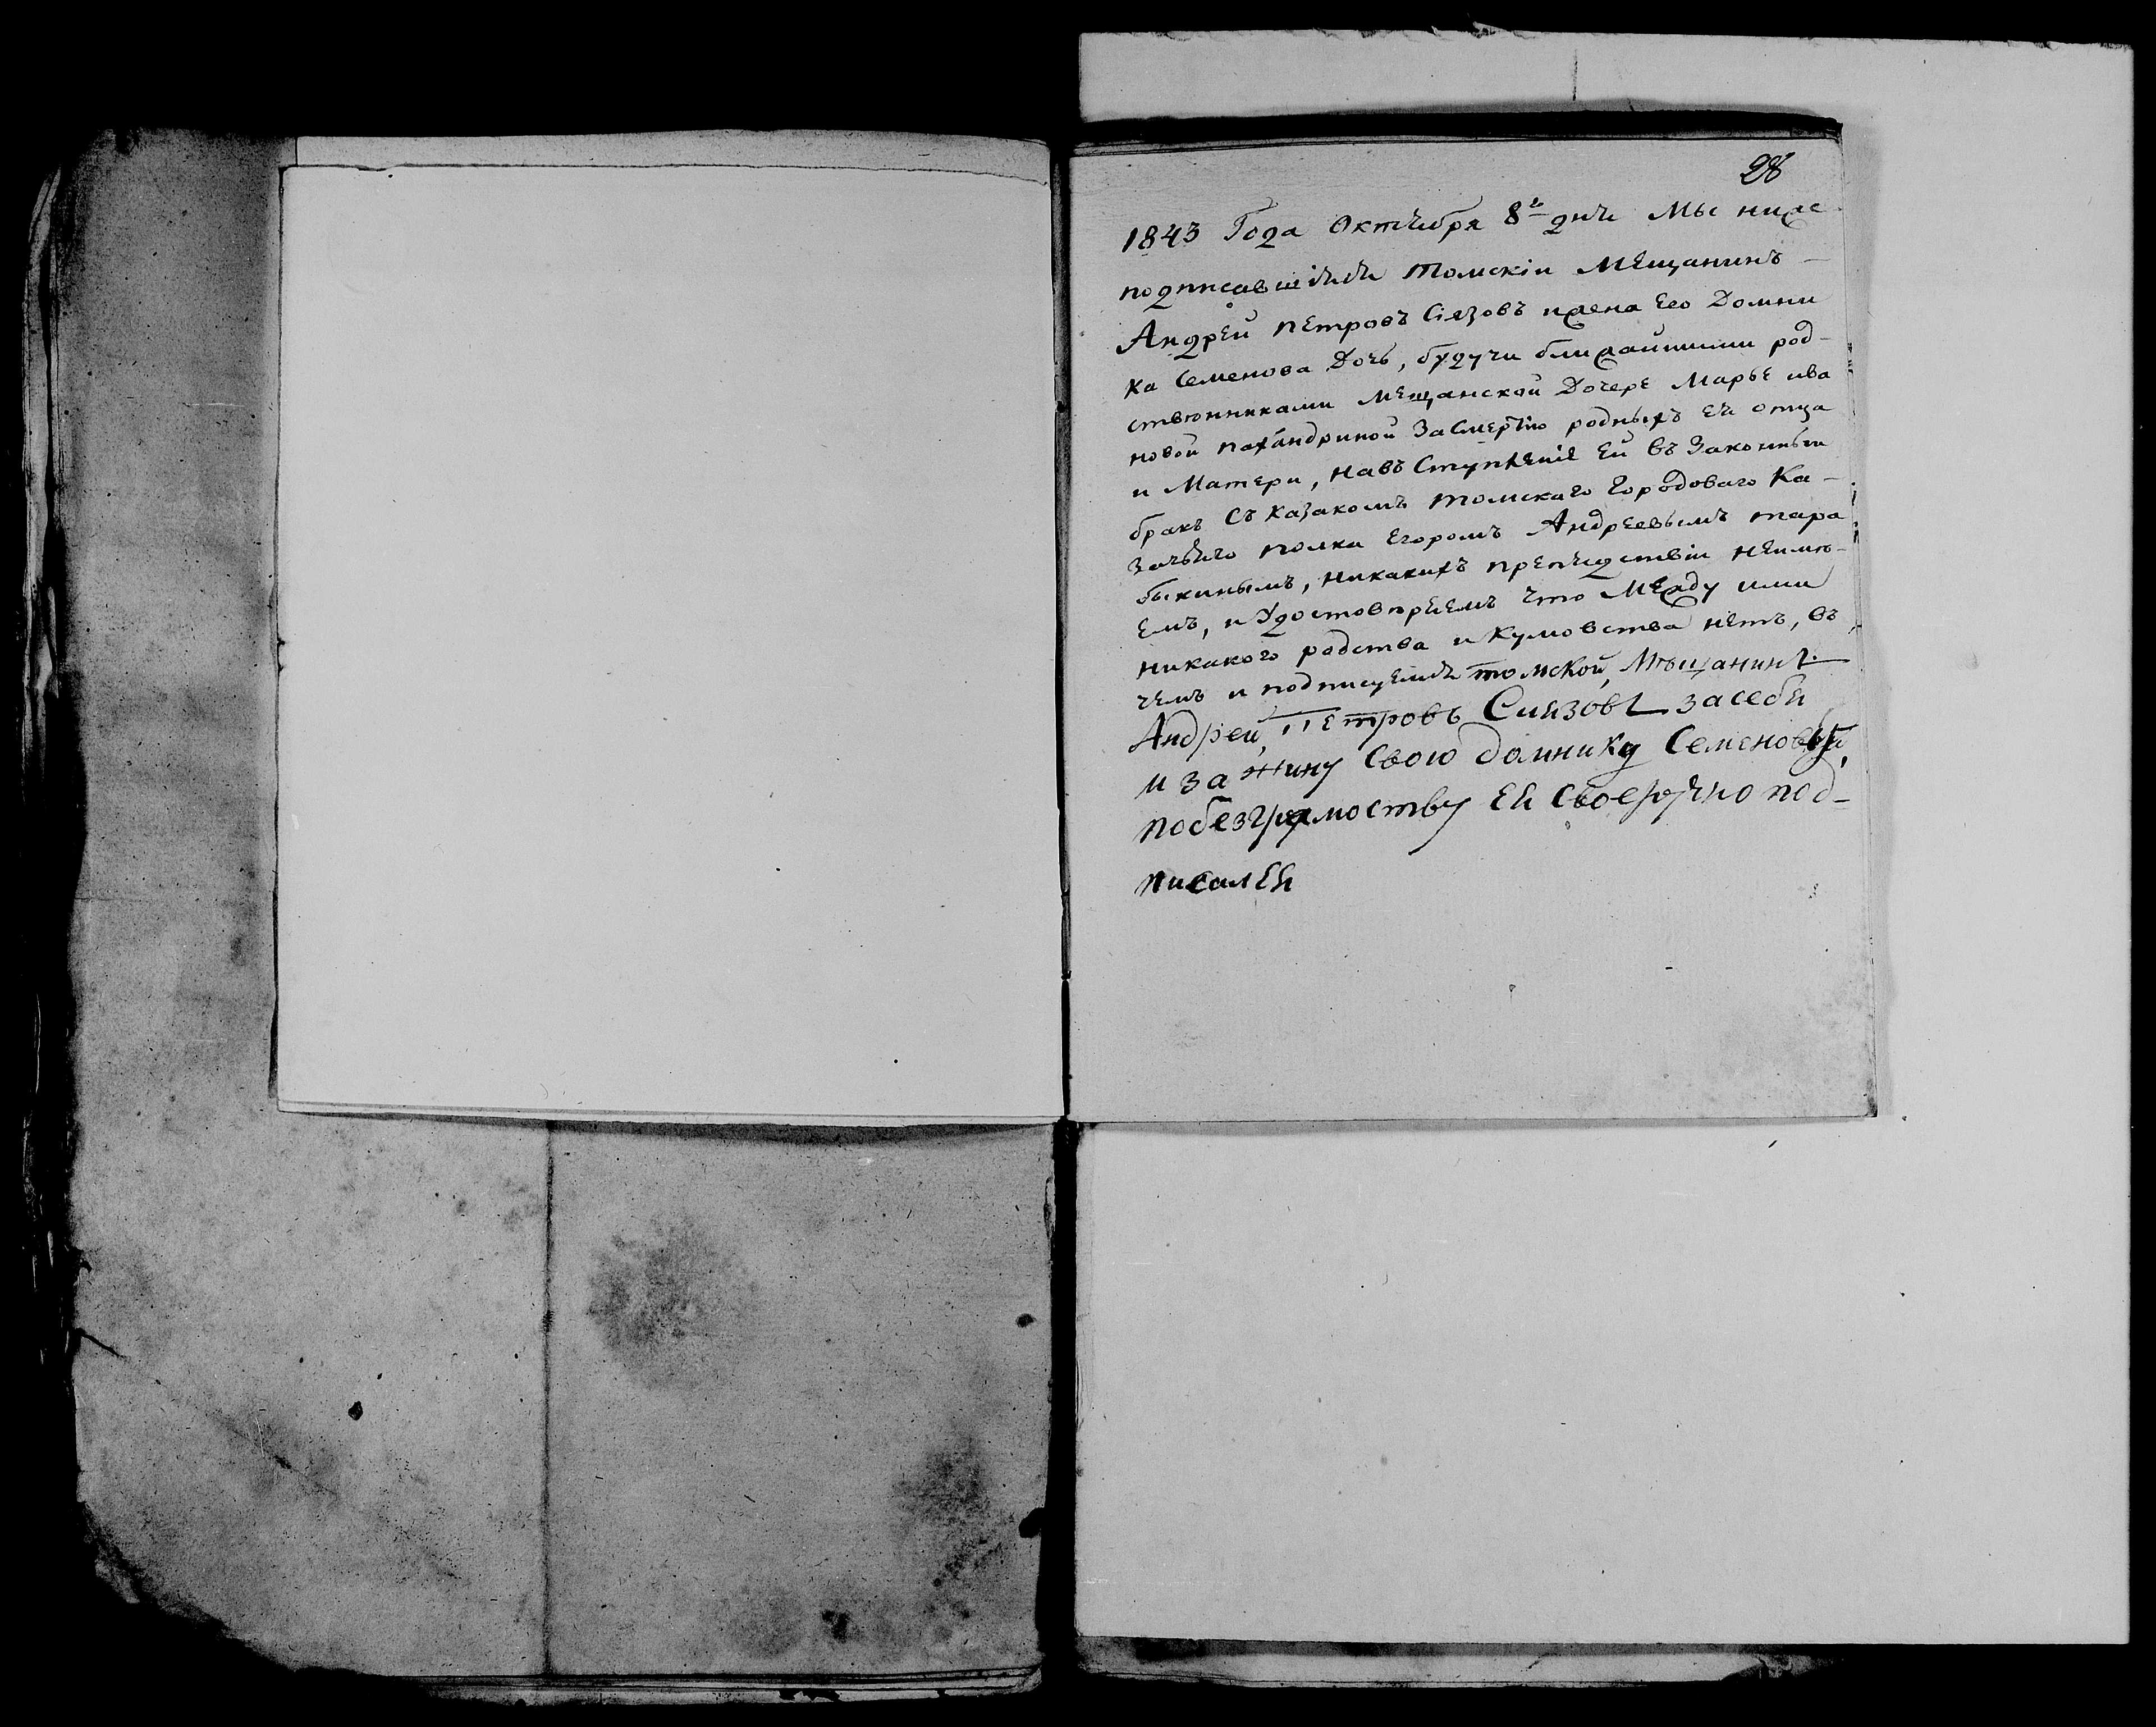 28
1843 Года Октября 8го дня Мы ниже
подписавшіяся Томскіи Мещанинъ
Андрей Петровъ Сіязовъ жена Его Домни
ка Семенова Дочь, будучи ближайшими род-
ственниками Мещанской Дочере Марье ива
новой Пахандриной За Смертію родныхъ Ея отца
и Матери, навъ Ступленіе Ей въ Законный
бракъ Съ Казакомъ Томскаго Городоваго Ка-
зачьяго полка Егоромъ Андреевымъ тара
быкинымъ, никакихъ препядствіи неимѣ-
емъ, и Удостовѣряемъ Что Между ими
никакого родства и Кумовства нетъ, въ
чемъ и подписуемся томской Мѣщанинъ
Андрей Петровъ Сиязовъ засебя
и за жину Свою домнику Семеновну
побезграмоству Ея Своеручно под-
писался